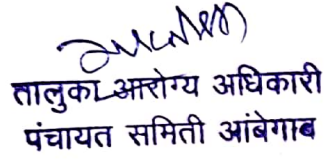 तालुका आरोग्य अधिकारी
पंचायत समिती आंबेगाब